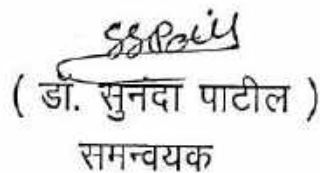 SSPatil
( डॉ. सुनंदा पाटील )
समन्वयक